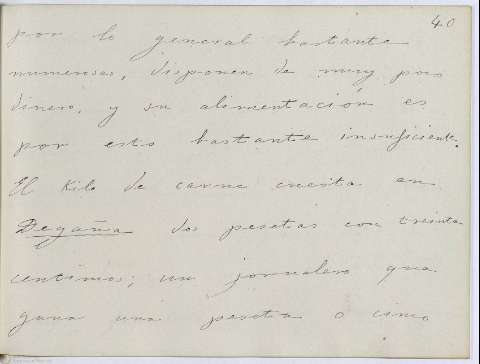 40
por lo general bastante
numerosas, disponen de muy poco
dinero, y su alimentación es
por esto bastante insuficiente.
El kilo de carne cuesta en
Degaña dos pesetas con treinta
centimos; un jornalero que
gana una peseta o cinco